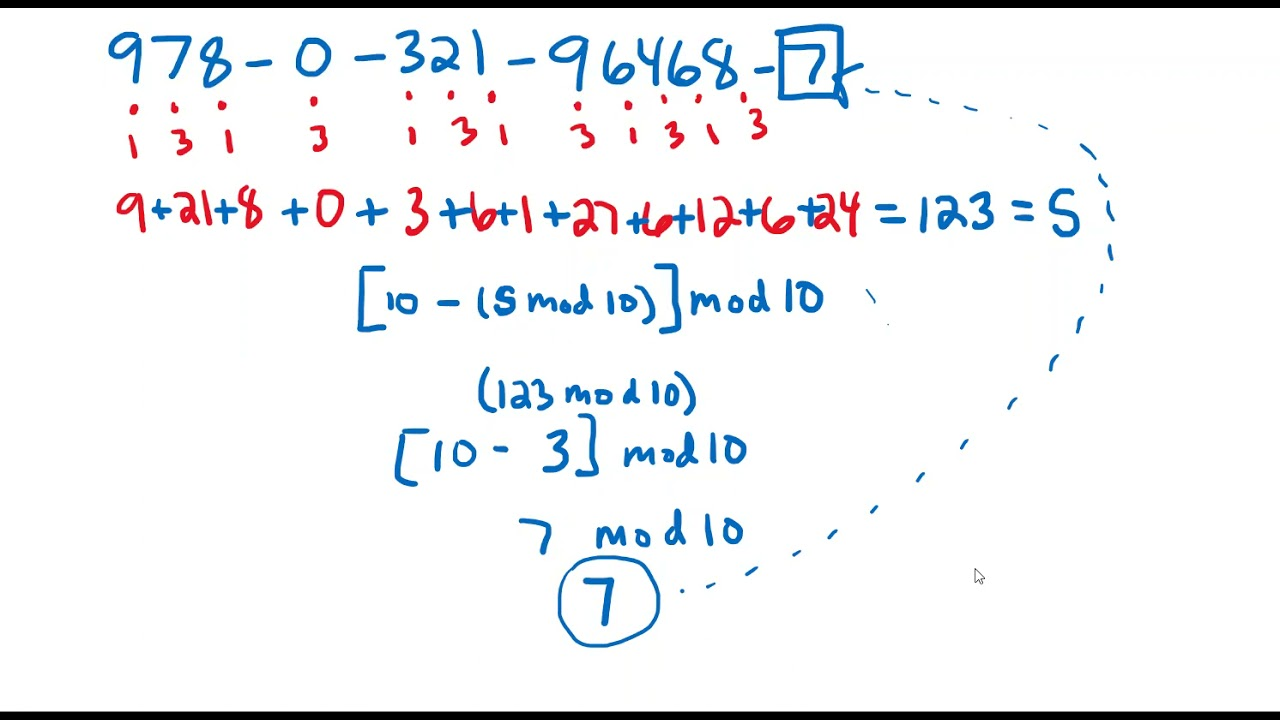 978 - 0 - 321 - 96468 - 7
1 3 1 3 1 3 1 3 1 3 1 3
9+21+8 +0 + 3 +6+1 +27+6+12+6+24 = 123 = S
[10 - (S mod 10)] mod 10
(123 mod 10)
[10 - 3] mod 10
7 mod 10
7